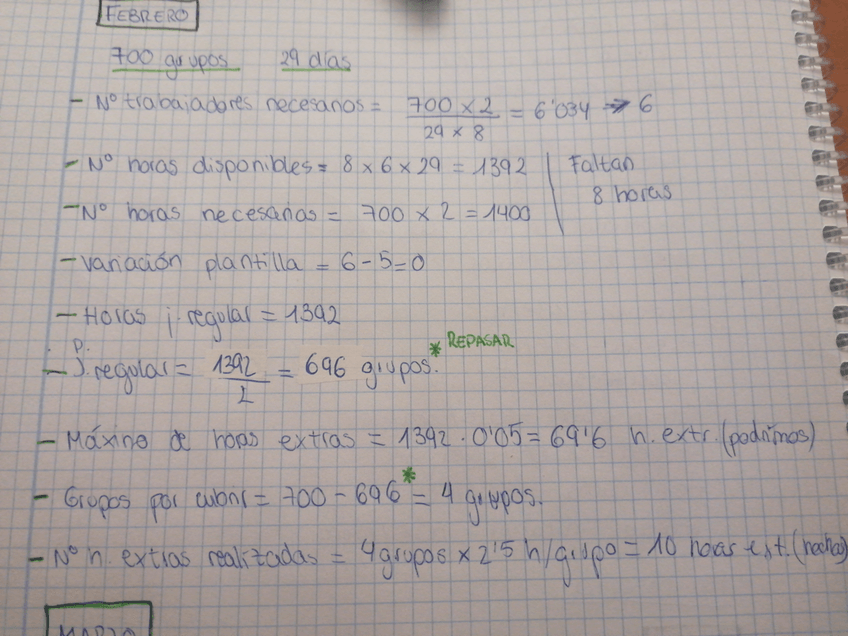 FEBRERO
700 grupos 29 días
- Nº trabajadores necesarios = 700 x 2 / 29 x 8 = 6'034 → 6
- Nº horas disponibles = 8 x 6 x 29 = 1392 | Faltan
8 horas
- Nº horas necesarias = 700 x 2 = 1400
- Variación plantilla = 6 - 5 = 0
- Horas j. regular = 1392
* REPASAR
- P. J. regular = 1392 / 2 = 696 grupos.
- Máximo de horas extras = 1392 · 0'05 = 69'6 h. extr. (podríamos)
- Grupos por cubrir = 700 - 696* = 4 grupos.
- Nº h. extras realizadas = 4 grupos x 2'5 h/grupo = 10 horas ext. (hechas)
MARZO